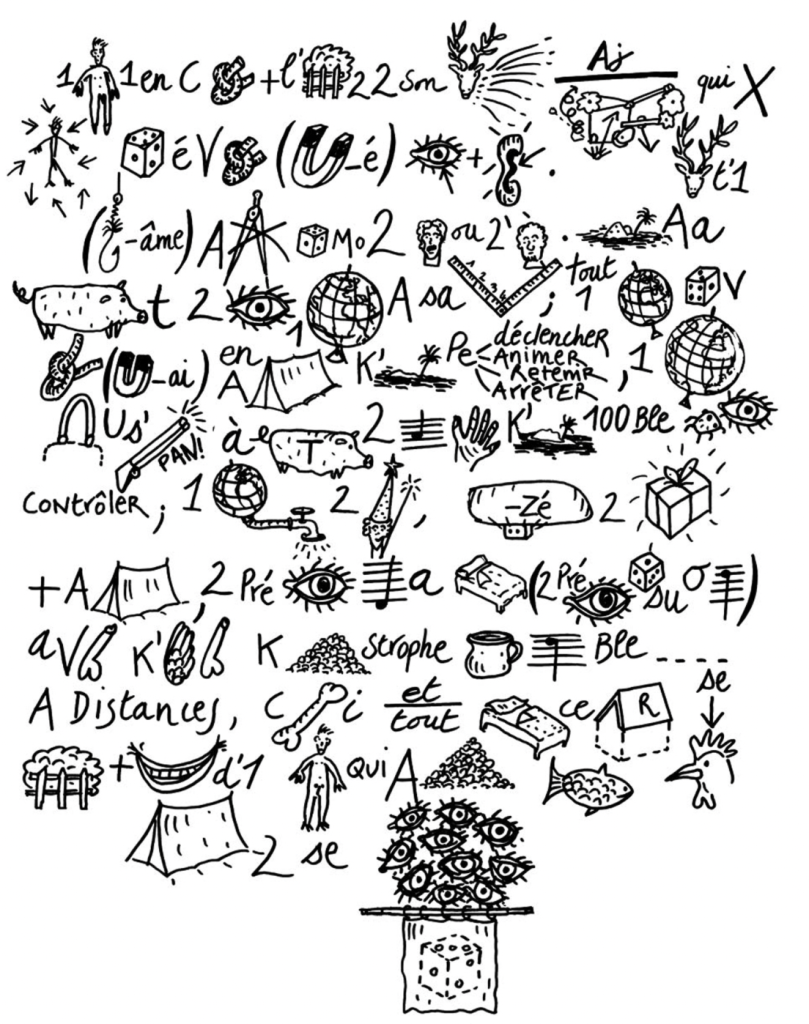 1 1 en C + l' 2 2 son Aj qui X
é V ( -é) + . t'1
( -âme) A Mo 2 ou 2' . Aa
t 2 1 A sa 1 2 3 4 ; 1 tout V
( -ai) en A K' Pe déclencher Animer Retenir Arrêter , 1
Us' PAN! à e T 2 K' 100 Ble
contrôler ; 1 2 , -Zé 2
+ A , 2 Pré a ( 2 Pré su )
a V K' K strophe Ble -----
A Distances, C i et tout ce R se
+ d'1 qui A
2 se